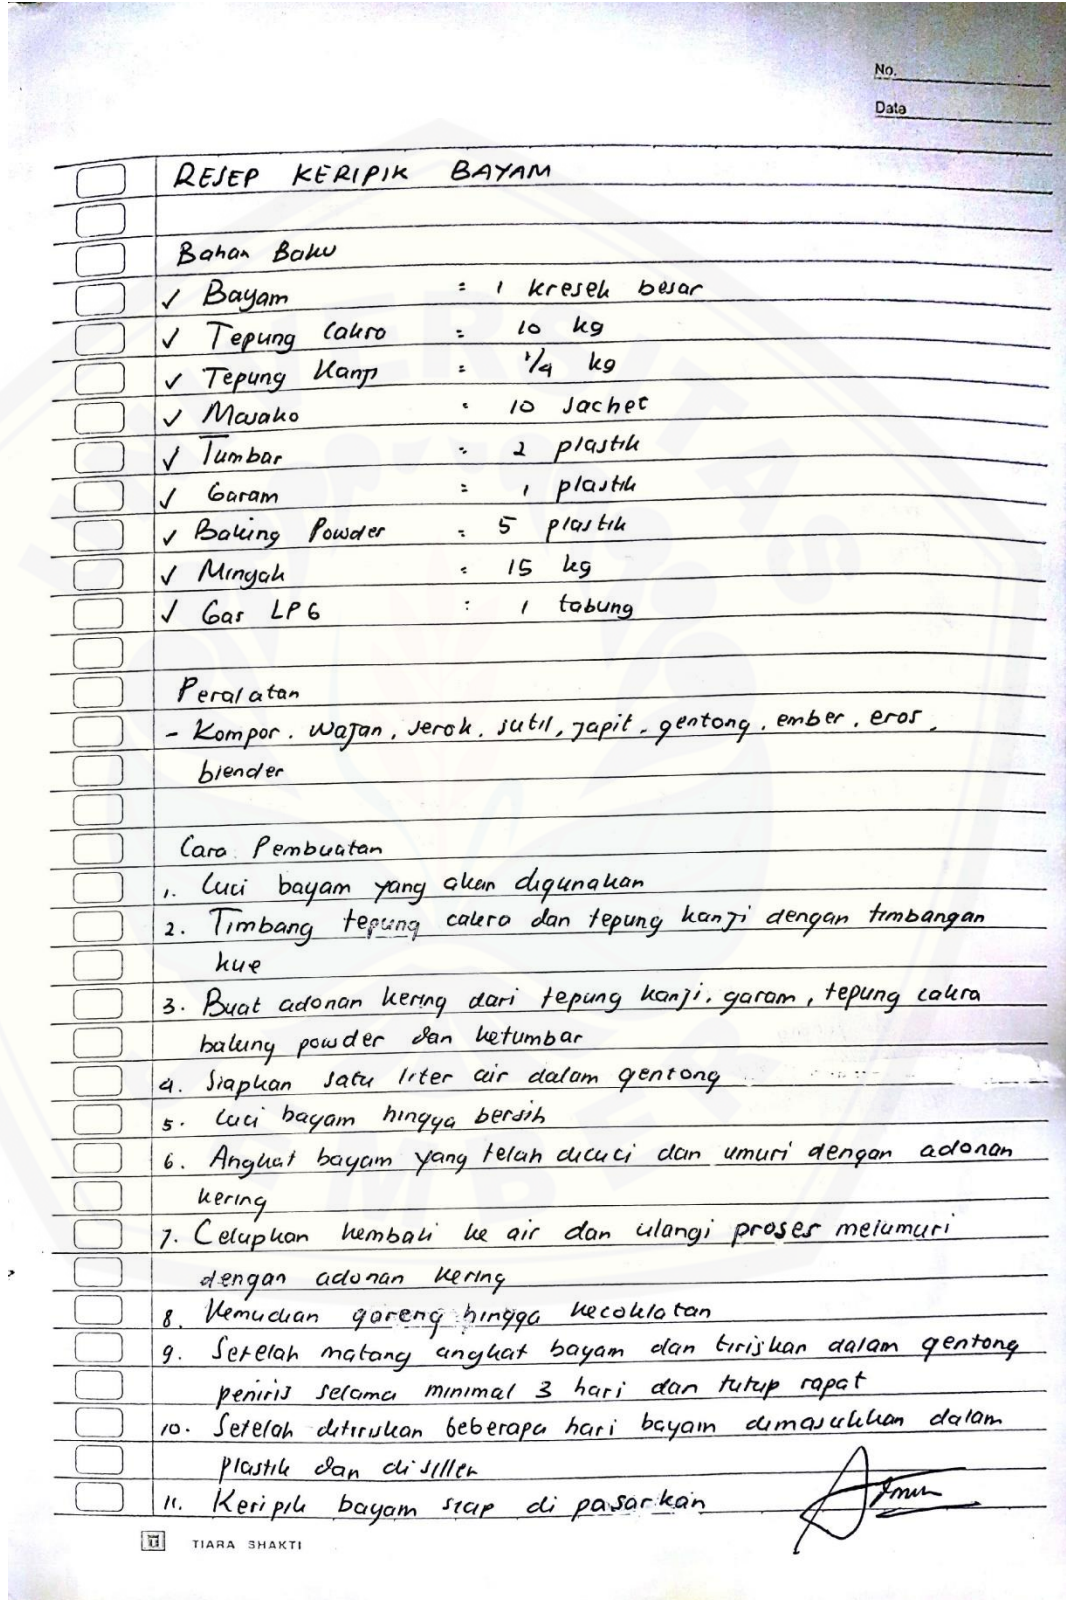 No.
Date
RESEP KERIPIK BAYAM
Bahan Baku
✓ Bayam = 1 kresek besar
✓ Tepung Cakra = 10 kg
✓ Tepung Kanji = 1/4 kg
✓ Masako = 10 sachet
✓ Tumbar = 2 plastik
✓ Garam = 1 plastik
✓ Baking Powder = 5 plastik
✓ Minyak = 15 kg
✓ Gas LPG : 1 tabung
Peralatan
- Kompor, wajan, serok, sutil, japit, gentong, ember, eros,
blender
Cara Pembuatan
1. Cuci bayam yang akan digunakan
2. Timbang tepung cakra dan tepung kanji dengan timbangan
kue
3. Buat adonan kering dari tepung kanji, garam, tepung cakra
baking powder dan ketumbar
4. Siapkan satu liter air dalam gentong
5. Cuci bayam hingga bersih
6. Angkat bayam yang telah dicuci dan umuri dengan adonan
kering
7. Celupkan kembali ke air dan ulangi proses melumuri
dengan adonan kering
8. Kemudian goreng hingga kecoklatan
9. Setelah matang angkat bayam dan tiriskan dalam gentong
peniris selama minimal 3 hari dan tutup rapat
10. Setelah ditiriskan beberapa hari bayam dimasukkan dalam
plastik dan disiller
11. Keripik bayam siap di pasarkan
TIARA SHAKTI
UNIVERSITAS
JEMBER